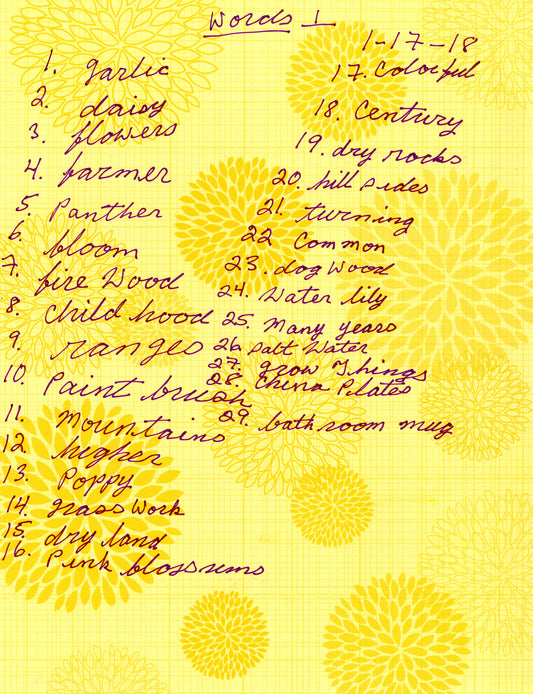 Words 1
1-17-18
1. garlic
2. daisy
3. flowers
4. farmer
5. Panther
6. bloom
7. fire Wood
8. Child hood
9. ranges
10. Paint brush
11. Mountains
12. higher
13. Poppy
14. grass Work
15. dry land
16. Pink blossums
17. Colorful
18. Century
19. dry rocks
20. hill sides
21. turning
22 Common
23. dog Wood
24. Water lily
25. Many years
26. Salt Water
27. grow Things
28. China Plates
29. bath room mug